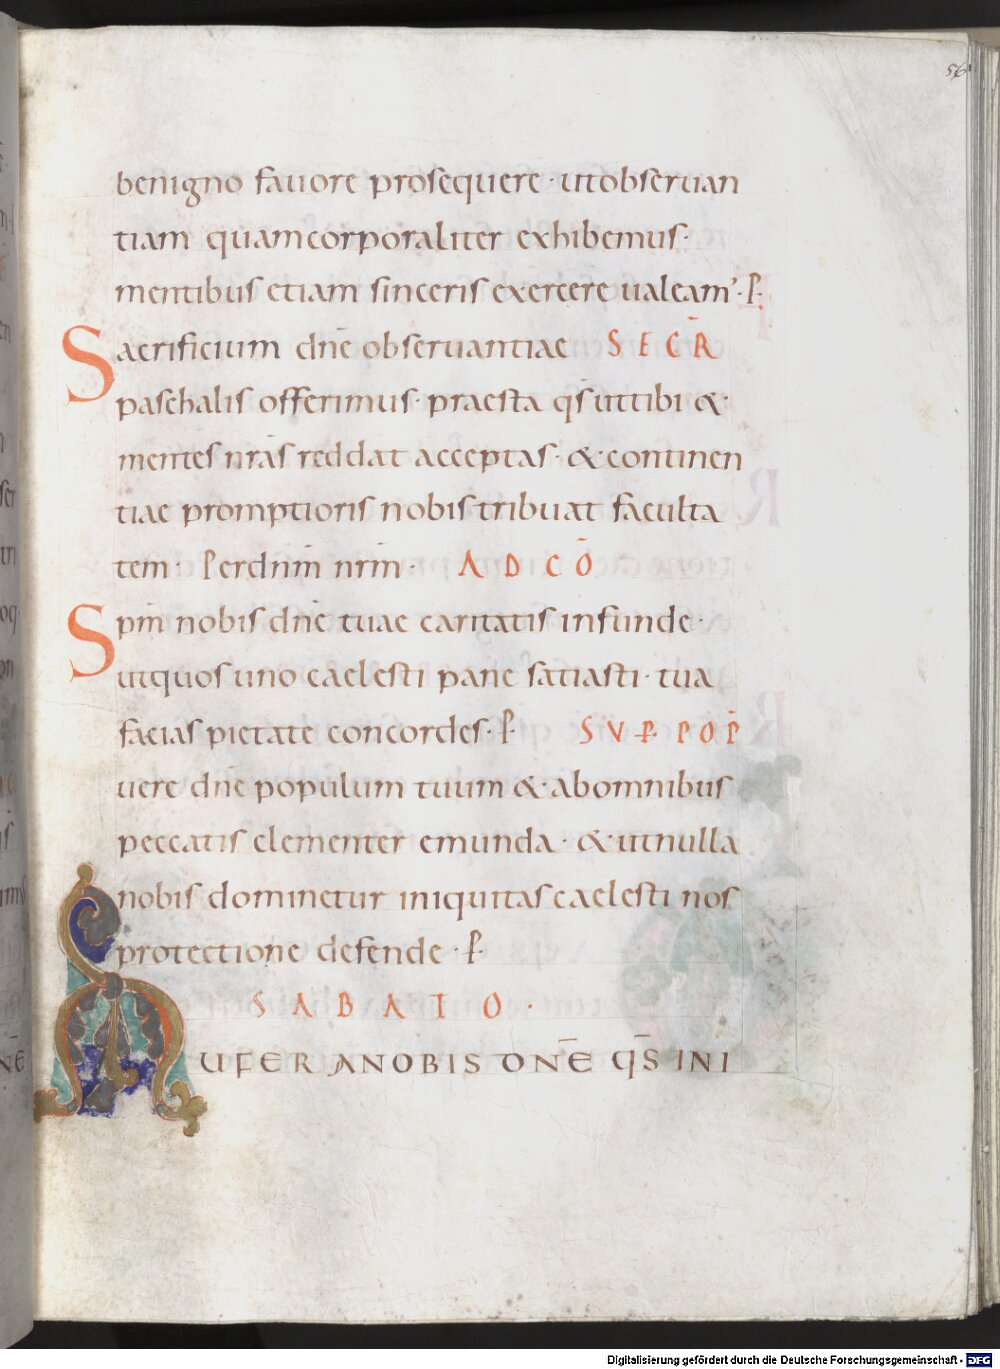 56
benigno fauore prosequere · utobseruan
tiam quamcorporaliter exhibemus ·
mentibus etiam sinceris exercere ualeam' · P̵.
Sacrificium dn̄e obseruantiae SECR̄
paschalis offerimus · praesta qs̄ uttibi &
mentes nr̄as reddat acceptas · & continen
tiae promptioris nobis tribuat faculta
tem · Perdn̄m nr̄m · ADCŌ
Spm̄ nobis dn̄e tuae caritatis infunde ·
utquos uno caelesti pane satiasti · tua
facias pietate concordes · P̵ SVP̵ POP̄
uere dn̄e populum tuum & abomnibus
peccatis clementer emunda · & utnulla
nobis dominetur iniquitas caelesti nos
protectione defende · P̵
SABATO ·
AUFER ANOBIS DN̄E QS̄ INI
Digitalisierung gefördert durch die Deutsche Forschungsgemeinschaft - DFG